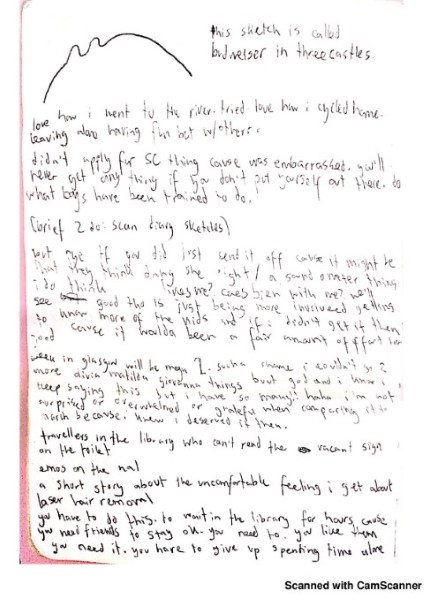 this sketch is called
in three castles.
love how i went to the river. tried. love how i cycled home.
leaving alone having fun but w/others.
didn't apply for SC thing cause was embarrassed. you'll
never get anything if you don't put yourself out there. do
what boys have been trained to do.
(brief 2 do: scan diary sketches)
but if you did just send it off cause it might be
that they think dang she right / a
i do think likes me? with me? we'll
see good tho is just being more involved getting
to know more of the and if i didn't get it then
good cause it woulda been a fair amount of effort
week in glasgow will be mega 2. such a shame i couldn't go 2
more divin matilda things bout god and i know i
keep saying this but i have so many! haha i'm not
surprised or overwhelmed or grateful when comparing it to
march because i knew i deserved it then.
travellers in the library who can't read the vacant sign
on the toilet
emos on the
a short story about the uncomfortable feeling i get about
laser hair removal
you have to do this. to wait in the library for hours cause
you need friends to stay ok. you need to. you like them
you need it. you have to give up spending time alone
Scanned with CamScanner